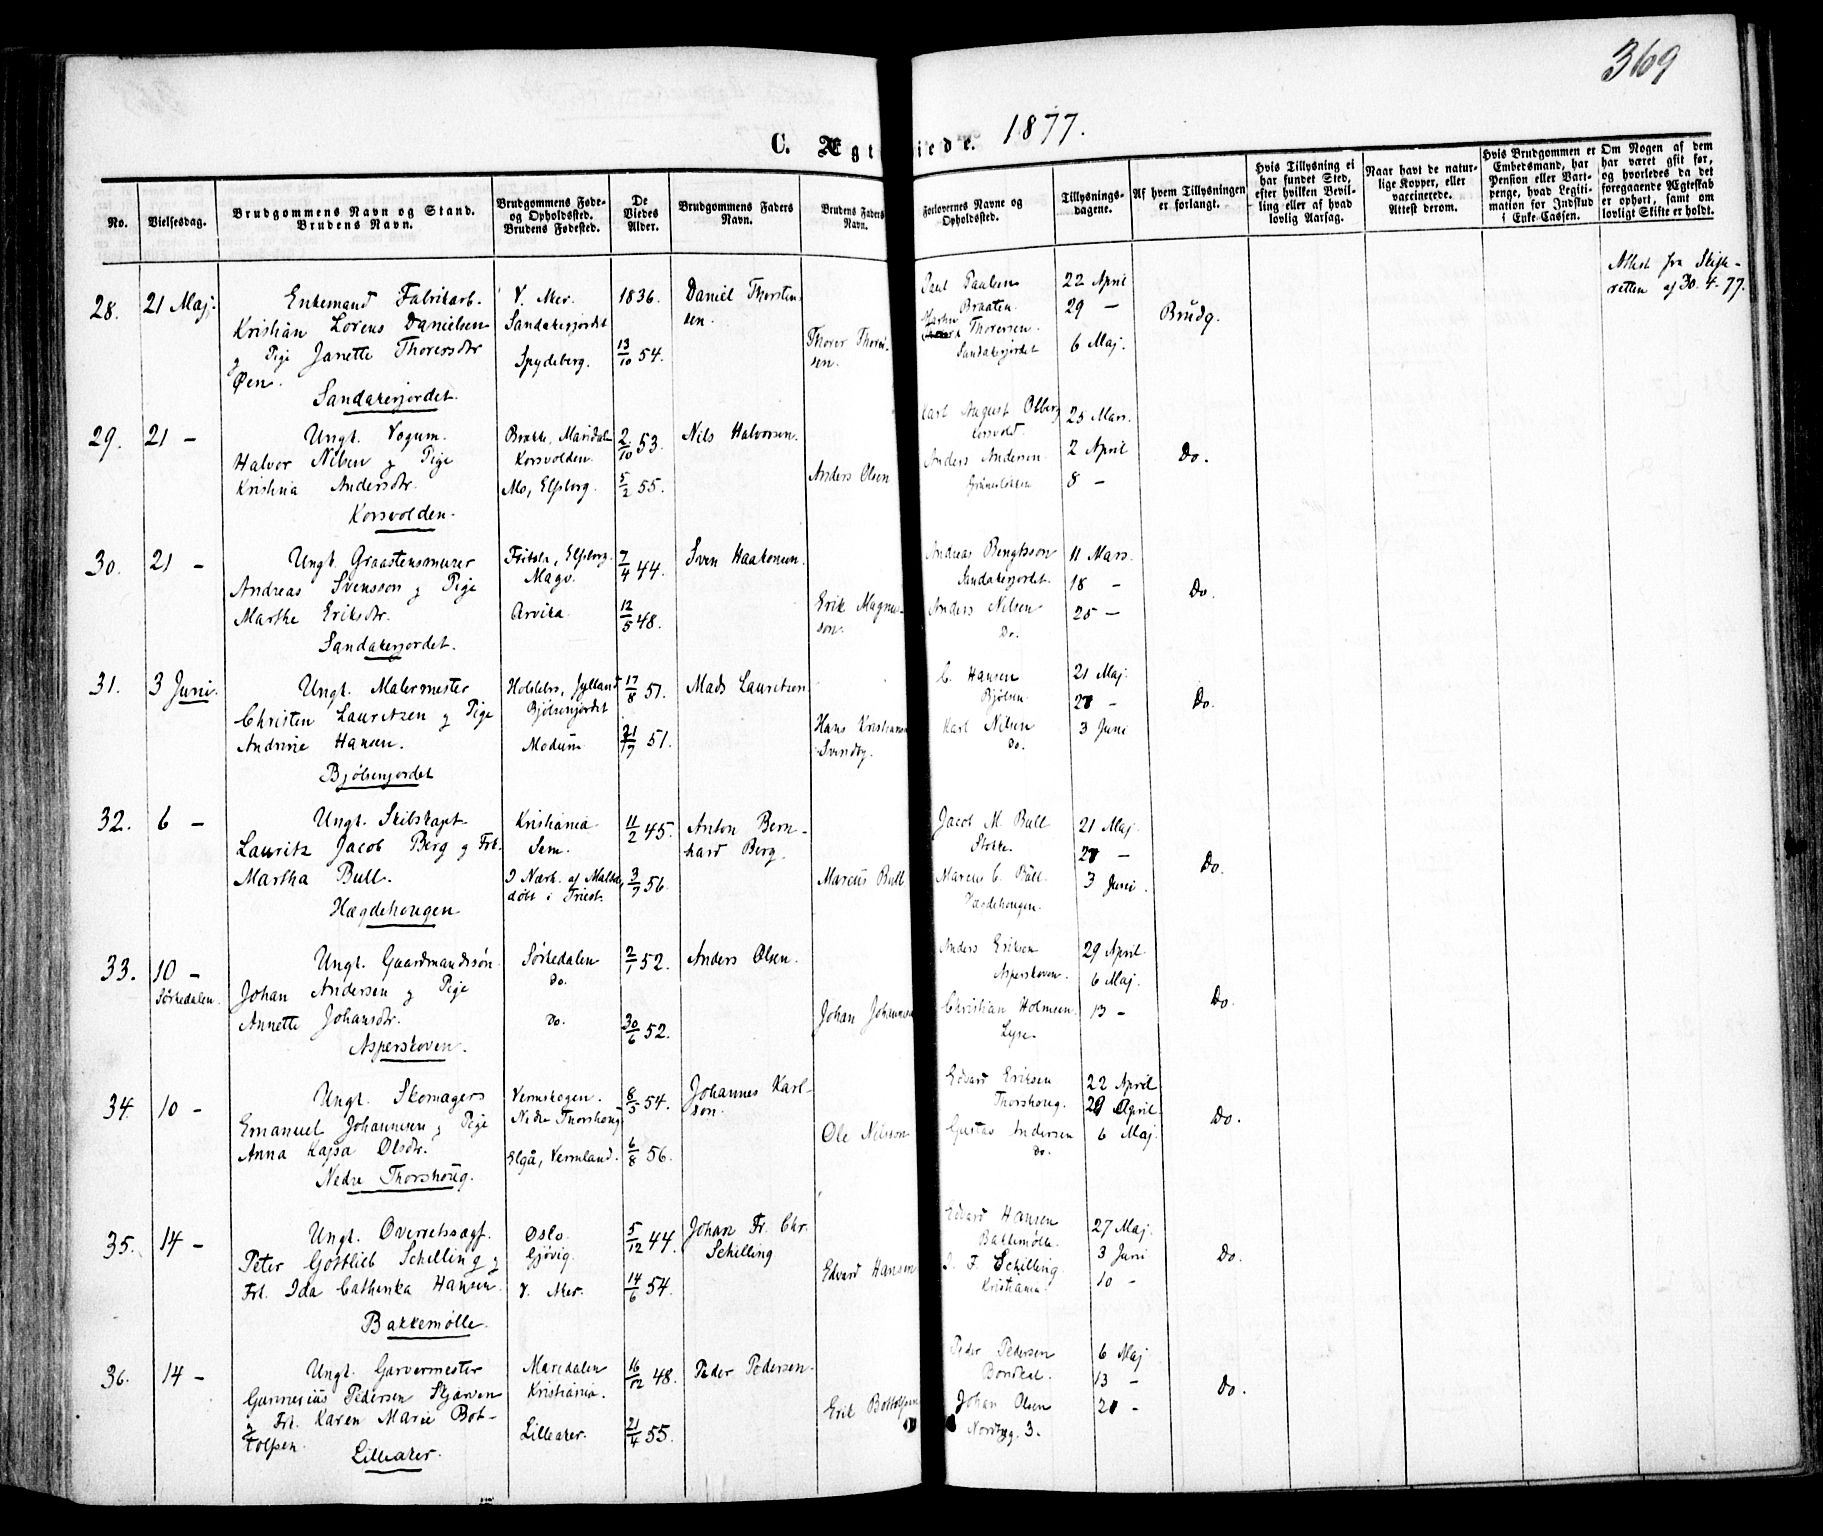 369
C. Ægt iede. 1877.
No.
Vielsesdag.
Brudgommens Navn og Stand.
Brudens Navn.
Brudgommens Føde-
og Opholdssted.
Brudens Fødested.
De
Viedes
Alder.
Brudgommens Faders
Navn.
Brudens Faders
Navn.
Forlovernes Navne og
Opholdssted.
Tillysnings-
dagene.
Af hvem Tillysningen
er forlangt.
Hvis Tillysning ei
har fundet Sted,
efter hvilken Bevil-
ling eller af hvad
lovlig Aarsag.
Naar havt de natur-
lige Kopper, eller
vaccinerede.
Attest derom.
Hvis Brudgommen er
Embedsmand, har
Pension eller Vart-
penge, hvad Legiti-
mation for Indskud
i Enke-Cassen.
Om Nogen af dem
har været gift før,
og hvorledes da det
foregaaende Ægteskab
er ophørt, samt om
lovligt Skifte er holdt.
28. 21 Maj.
Enkemand Fabrikarb.
Kristian Lorens Danielsen
g Pige Janette Thorersdtr
Øen.
Sandakerjordet.
V. Aker.
Sandakerjordet
Spydeberg.
1836.
13/10 54.
Daniel Thorsten
sen.
Thorer Thorer-
sen.
Paul Paulsen
Braaten
Martin Thorersen.
Sandakerjordet
22 April
29 —
6 Maj.
Brudg.
Attest fra Skifte-
retten af 30. 4. 77.
29. 21 —
Ungk. Vognm.
Halvor Nilsen g Pige
Kristina Andersdtr.
Korsvolden.
Brekke, Maridalen
Korsvolden.
Mo, Elfsborg.
2/10 53.
5/2 55.
Nils Halvorsen.
Anders Olsen
Karl August Olberg
Korsvold.
Anders Andersen
Grünerløkken
25 Mars.
2 April
8 —
Do.
30. 21 —
Ungk. Graastensmurer
Andreas Svensson g Pige
Marthe Eriksdtr.
Sandakerjordet.
Fritsla, Elfsborg.
Magv.
Arvika.
7/4 44.
12/5 48.
Sven Haakonsen.
Erik Magnus-
son.
Andreas Bengtsson
Sandakerjordet.
Anders Nilsen
Do.
11 Mars.
18 —
25 —
Do.
31. 3 Juni.
Ungk. Malermester
Christen Lauritzen g Pige
Andrine Hansen.
Bjølsenjordet
Holstebro, Jylland
Bjølsenjordet
Modum
17/8 51.
21/7 51.
Mads Lauritzen
Hans Kristiansen
Svendby.
C. Hansen
Bjølsen.
Karl Nilsen
Do.
21 Maj.
27 —
3 Juni
Do.
32. 6 —
Ungk. Skibskapt.
Lauritz Jacob Berg g Frk.
Martha Bull.
Hægdehougen
Kristiania
Sem.
I Nærh. af Malta,
døbt i Triest.
11/2 45.
3/7 56.
Anton Bern-
hard Berg.
Marcus Bull
Jacob M. Bull
Stokke.
Marcus C. Bull.
Hægdehougen.
21 Maj.
27 —
3 Juni.
Do.
33. 10 —
Sørkedalen.
Ungk. Gaardmandssøn
Johan Andersen g Pige
Annette Johansdtr.
Asperskoven.
Sørkedalen
Do.
Do.
2/1 52.
30/6 52.
Anders Olsen.
Johan Johannesen
Anders Eriksen
Asperskoven.
Christian Holmsen.
Lyse.
29 April
6 Maj.
13 —
Do.
34. 10 —
Ungk. Skomager
Emanuel Johannesen g Pige
Anna Kajsa Olsdtr.
Nedre Thorshoug.
Vermskogen.
Nedre Thorshoug
Elgå, Vermland.
8/5 54.
6/8 56.
Johannes Karl-
son.
Ole Nilsson
Edvard Eriksen
Thorshoug.
Gustav Andersen
Do.
22 April
29 April.
6 Maj.
Do.
35. 14 —
Ungk. Overretssagf.
Peter Gottlieb Schelling g
Frk. Ida Cathinka Hansen.
Bakkemølle.
Oslo.
Gjøvig.
V. Aker.
5/12 44.
14/6 54.
Johan Fr. Chr.
Schilling
Edvard Hansen
Edvard Hansen
Bakkemølle.
J. F. Schilling
Kristiania.
27 Maj.
3 Juni
10 —
Do.
36. 14 —
Ungk. Garvermester
Gunnerius Pedersen Skjærven
g Frk. Karen Marie Bot-
tolfsen.
Lilleaker.
Maridalen
Kristiania.
Lilleaker.
16/12 48.
21/4 55.
Peder Pedersen.
Erik Bottolfsen
Peder Pedersen
Bondkal.
Johan Olsen
Nordbyg. 3.
6 Maj
13 —
20 —
Do.